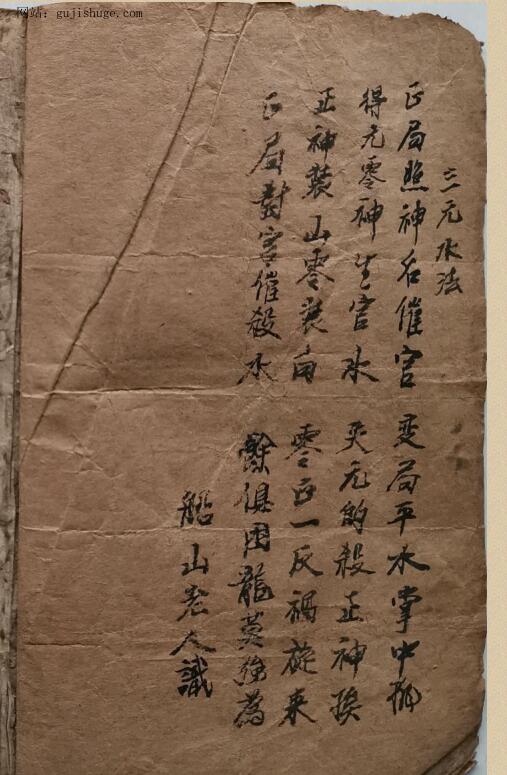 网站：gujishuge.com
三元水法
正局照神名催官 变局平水掌中
得元零神生官水 失元的殺正神挨
正神裝山零裝向 零正一反禍旋来
正局對宮催殺水 餘俱困龍莫強為
船山老人識